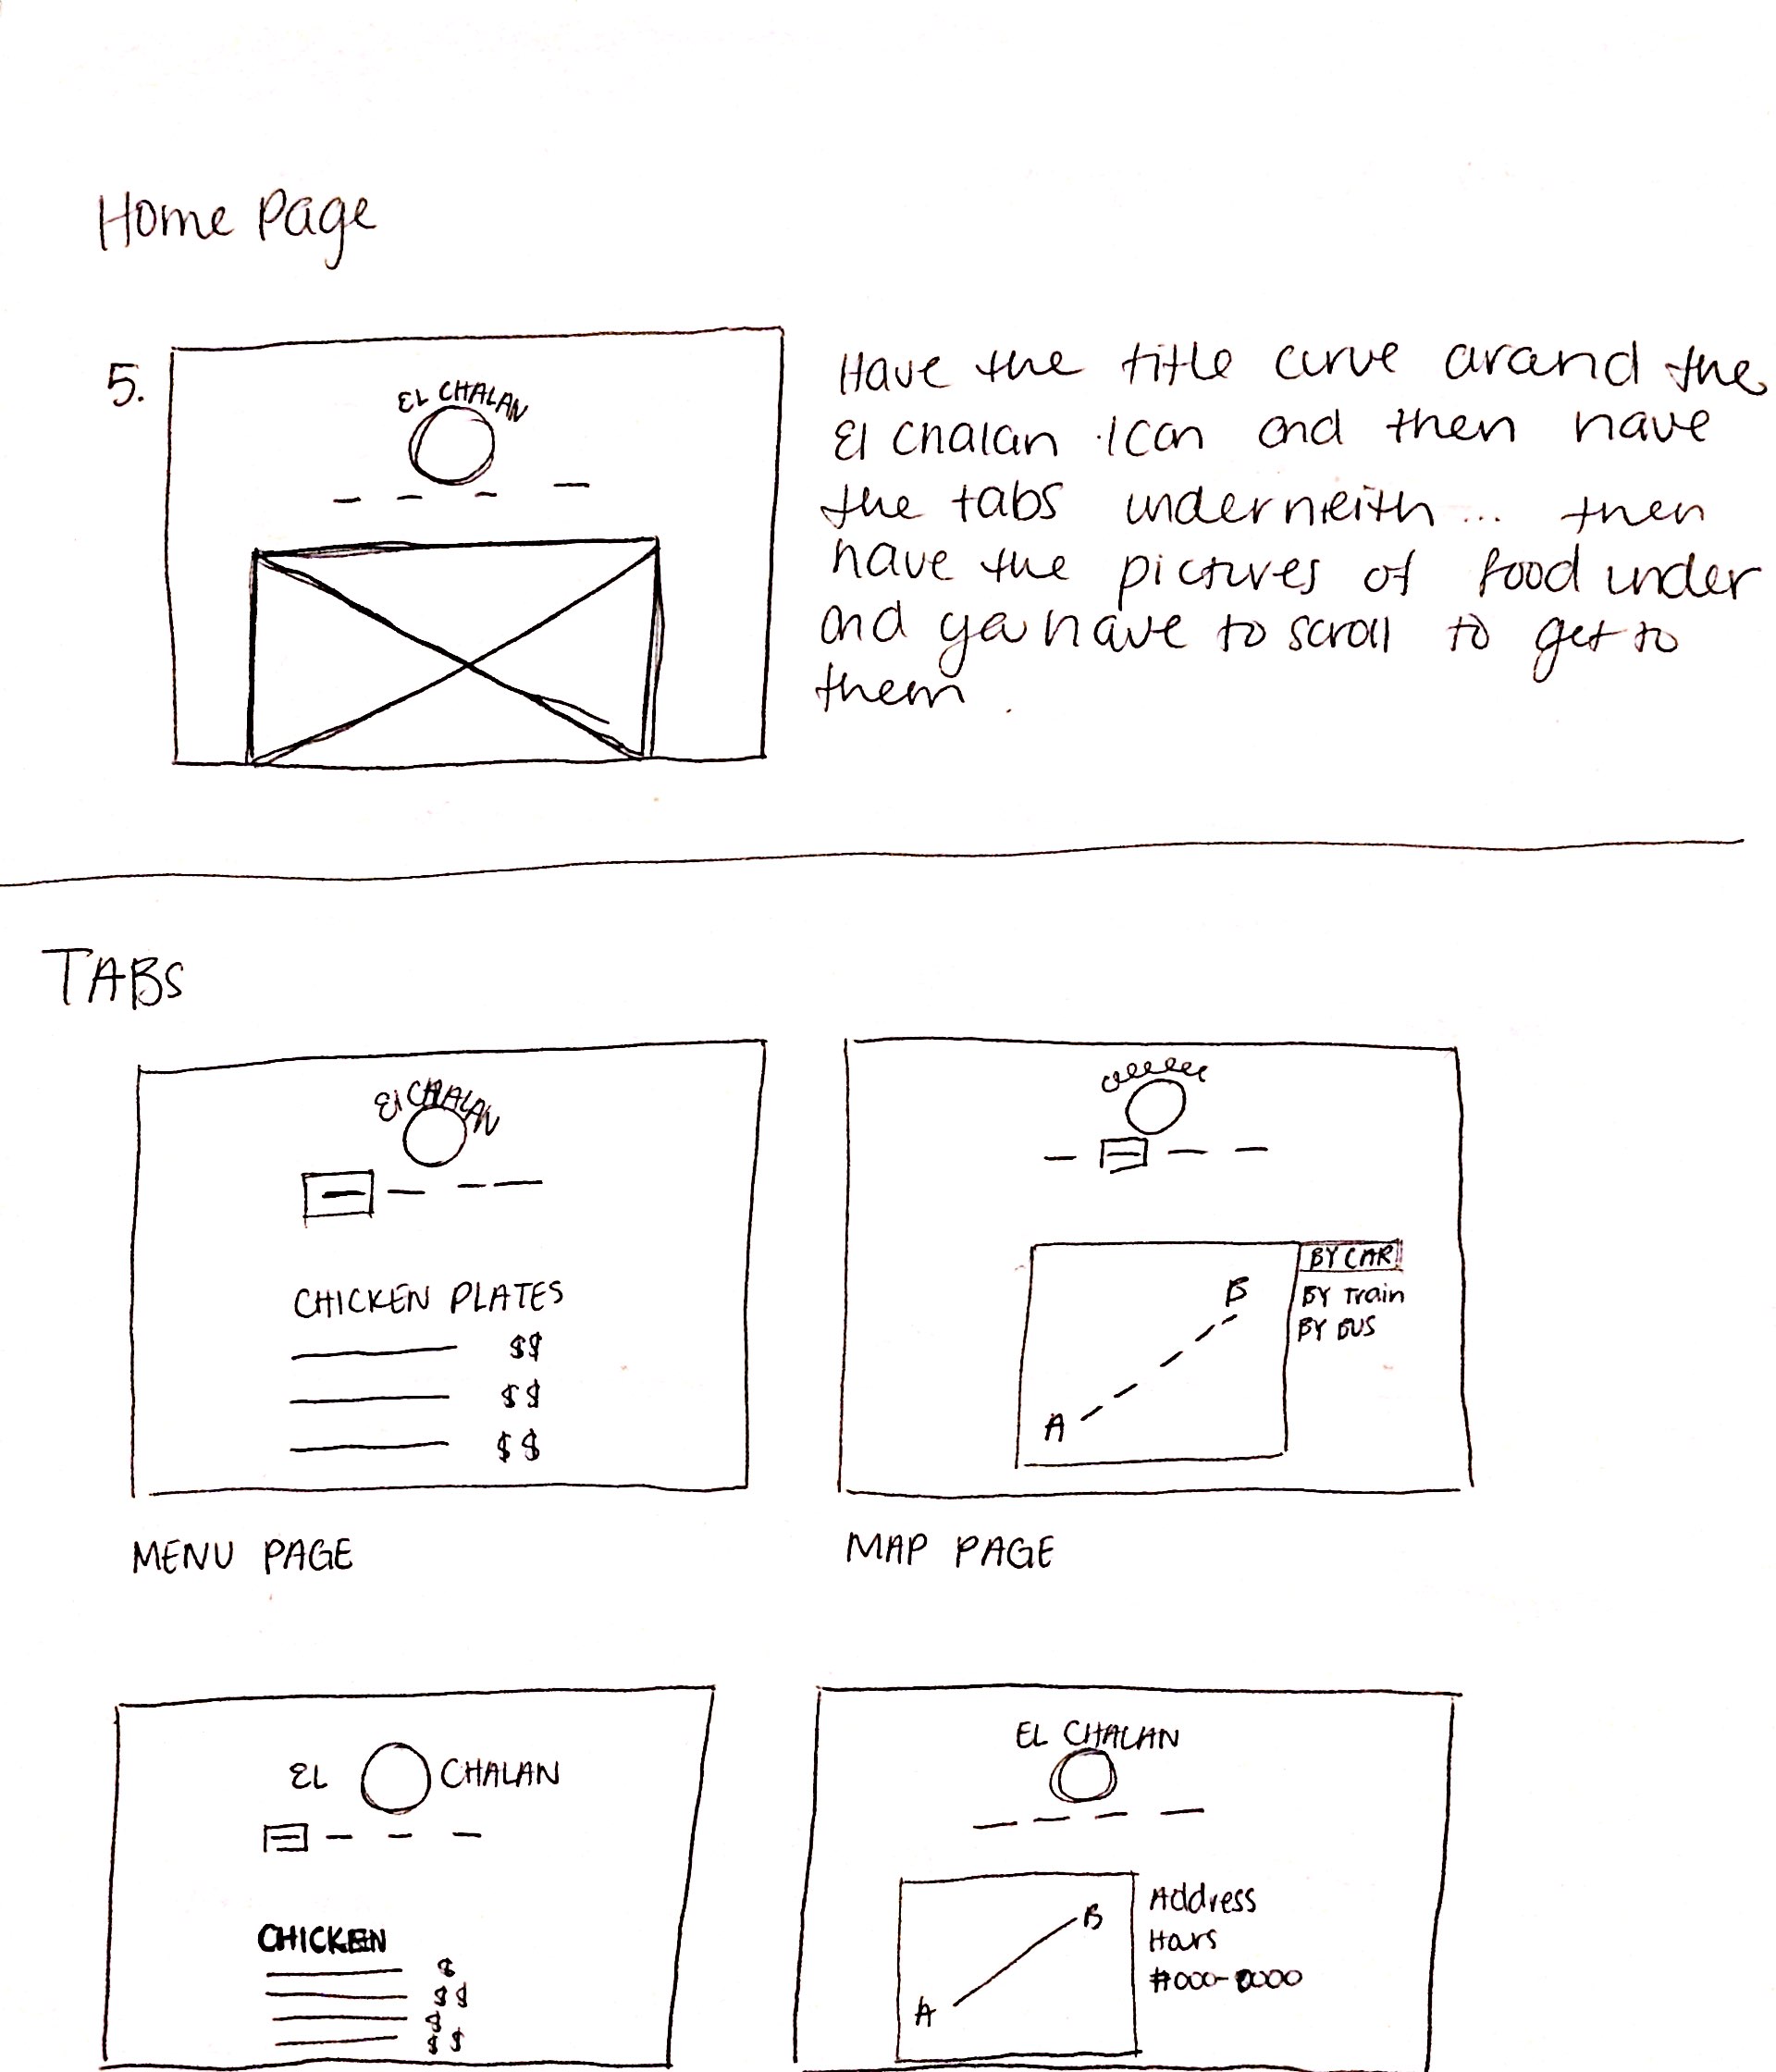 Home Page
5.
EL CHALAN
Have the title curve around the
El Chalan icon and then have
the tabs underneith... then
have the pictures of food under
and you have to scroll to get to
them.
TABS
El CHALAN
CHICKEN PLATES
$$
$$
$$
MENU PAGE
BY CAR
BY Train
BY BUS
B
A
MAP PAGE
EL CHALAN
CHICKEN
$
$$
$
$$
EL CHALAN
B
A
Address
Hours
#000-0000